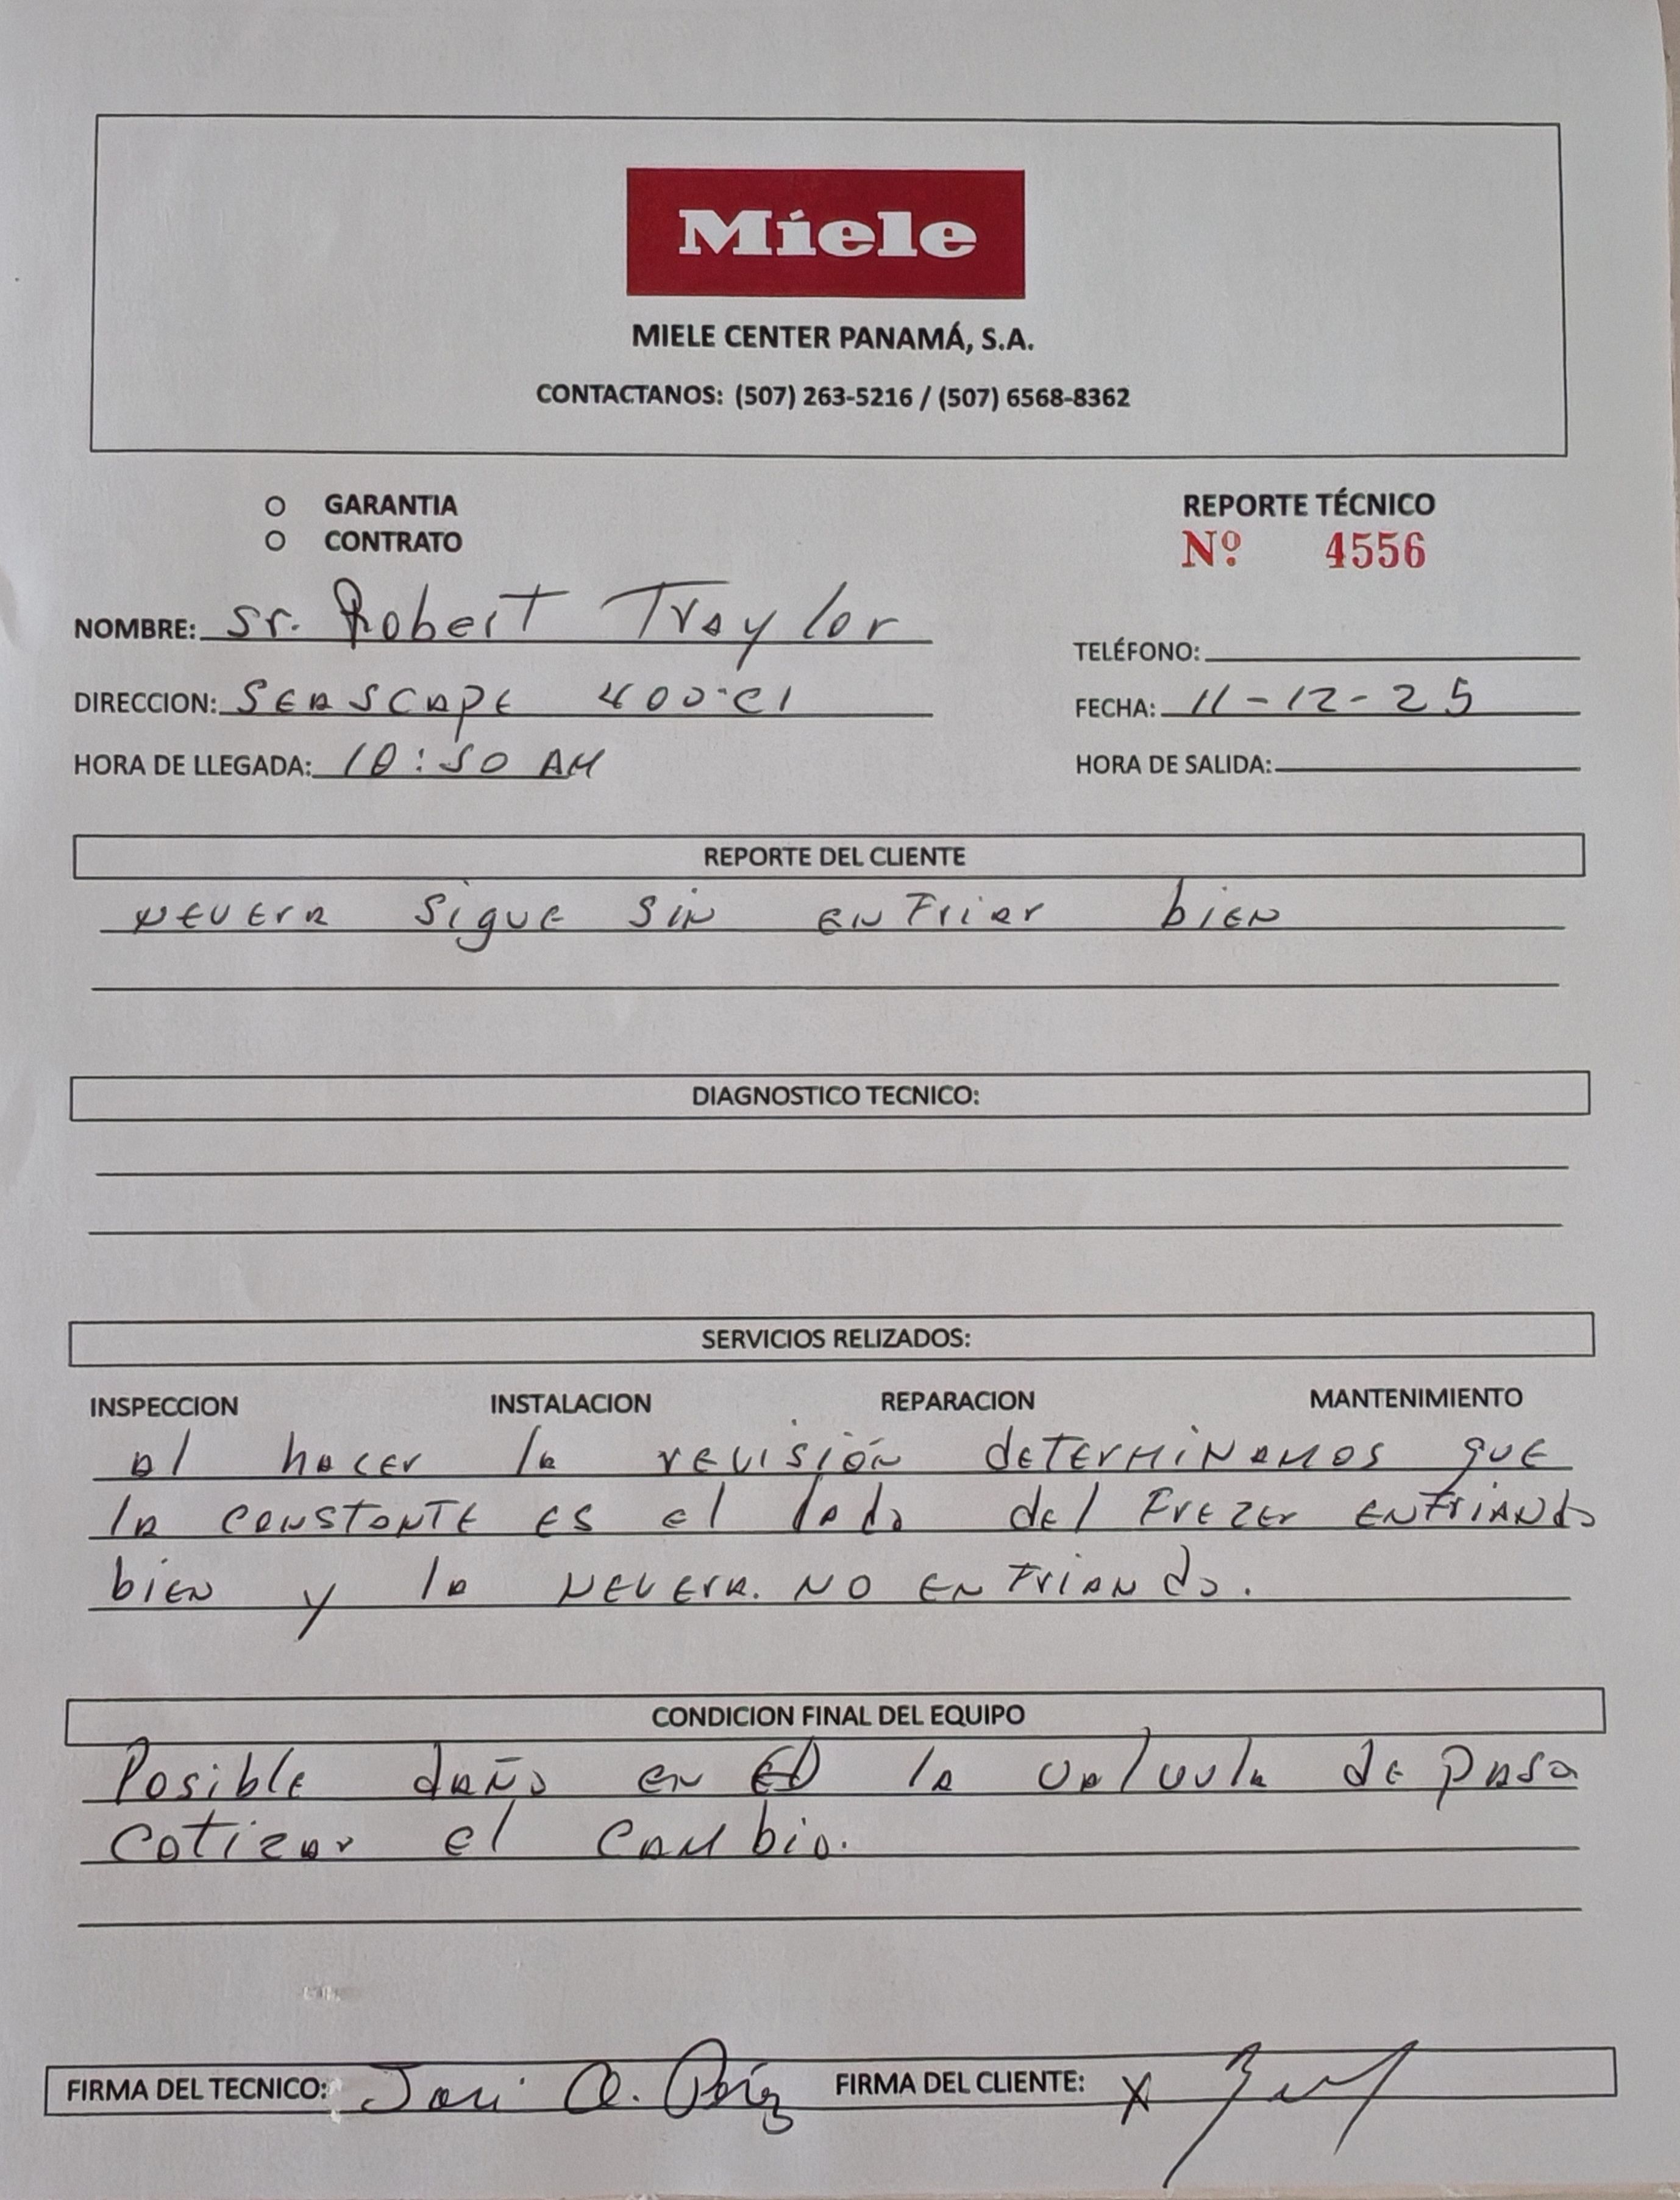 Miele
MIELE CENTER PANAMÁ, S.A.
CONTACTANOS: (507) 263-5216 / (507) 6568-8362
GARANTIA
CONTRATO
REPORTE TÉCNICO
Nº 4556
NOMBRE: Sr. Robert Traylor
TELÉFONO:
DIRECCION: SEASCAPE 400-C1
FECHA: 11-12-25
HORA DE LLEGADA: 10:50 AM
HORA DE SALIDA:
REPORTE DEL CLIENTE
NEVERA Sigue Sin enFriar bien
DIAGNOSTICO TECNICO:
SERVICIOS RELIZADOS:
INSPECCION INSTALACION REPARACION MANTENIMIENTO
al hacer la revisión deTERMiNAMOS que
la CONSTANTE ES el lado del FrEZEr ENFriANdo
bien y la NEVERA. NO ENFriANdo.
CONDICION FINAL DEL EQUIPO
Posible daño en la valvula de paso
Cotizar el cambio.
FIRMA DEL TECNICO:
FIRMA DEL CLIENTE: X